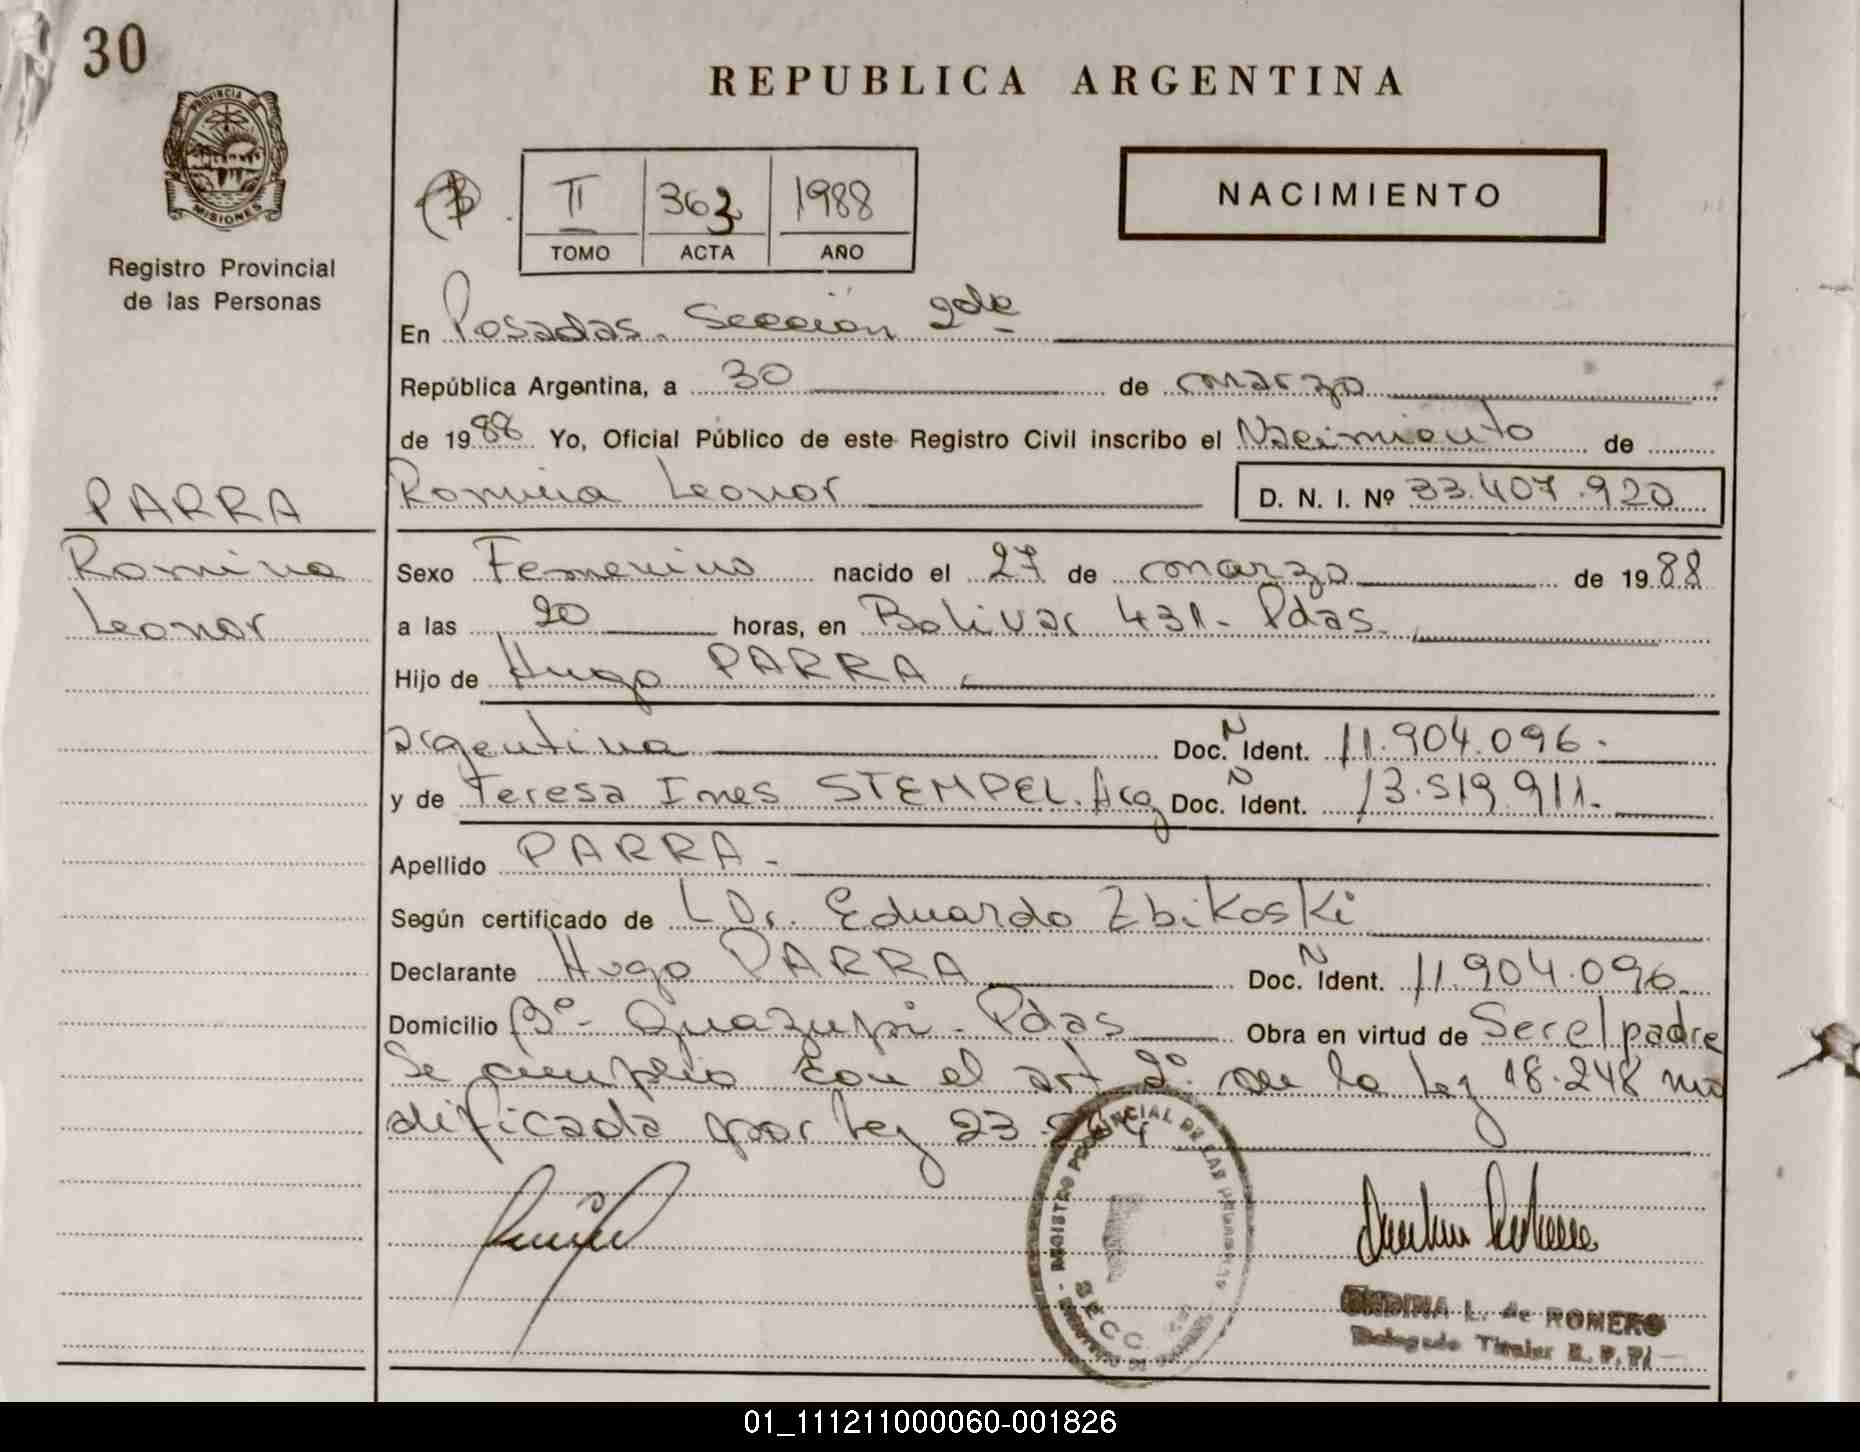 30
PROVINCIA DE
MISIONES
Registro Provincial
de las Personas
REPUBLICA ARGENTINA
II 363 1988
TOMO ACTA AÑO
NACIMIENTO
En Posadas. Sección 2da
República Argentina, a 30 de marzo
de 1988 Yo, Oficial Público de este Registro Civil inscribo el Nacimiento de
Romina Leonor D. N. I. Nº 33.407.920
PARRA
Romina
Leonor
Sexo Femenino nacido el 27 de marzo de 1988
a las 20 horas, en Bolivar 431 - Pdas.
Hijo de Hugo PARRA
argentina Doc. N Ident. 11.904.096.
y de Teresa Ines STEMPEL. Arg Doc. N Ident. 13.519.911.
Apellido PARRA -
Según certificado de Dr. Eduardo Zbikoski
Declarante Hugo PARRA Doc. N Ident. 11.904.096
Domicilio Bº - Guazupi - Pdas Obra en virtud de Ser el padre
Se cumplio con el art 2º de la Ley 18.248 mo
dificada por Ley 23.
REGISTRO PROVINCIAL DE LAS
SECC
L. de ROMERO
Delegado Titular R. P. P.
01_111211000060-001826